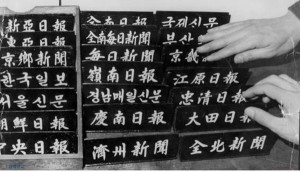 新亞日報 全南日報 국제신문
東亞日報 全南每日新聞 부산
京鄕新聞 每日新聞 京畿
한국일보 嶺南日報 江原日報
서울신문 경남매일신문 忠淸日報
朝鮮日報 慶南日報 大田日報
中央日報 濟州新聞 全北新聞